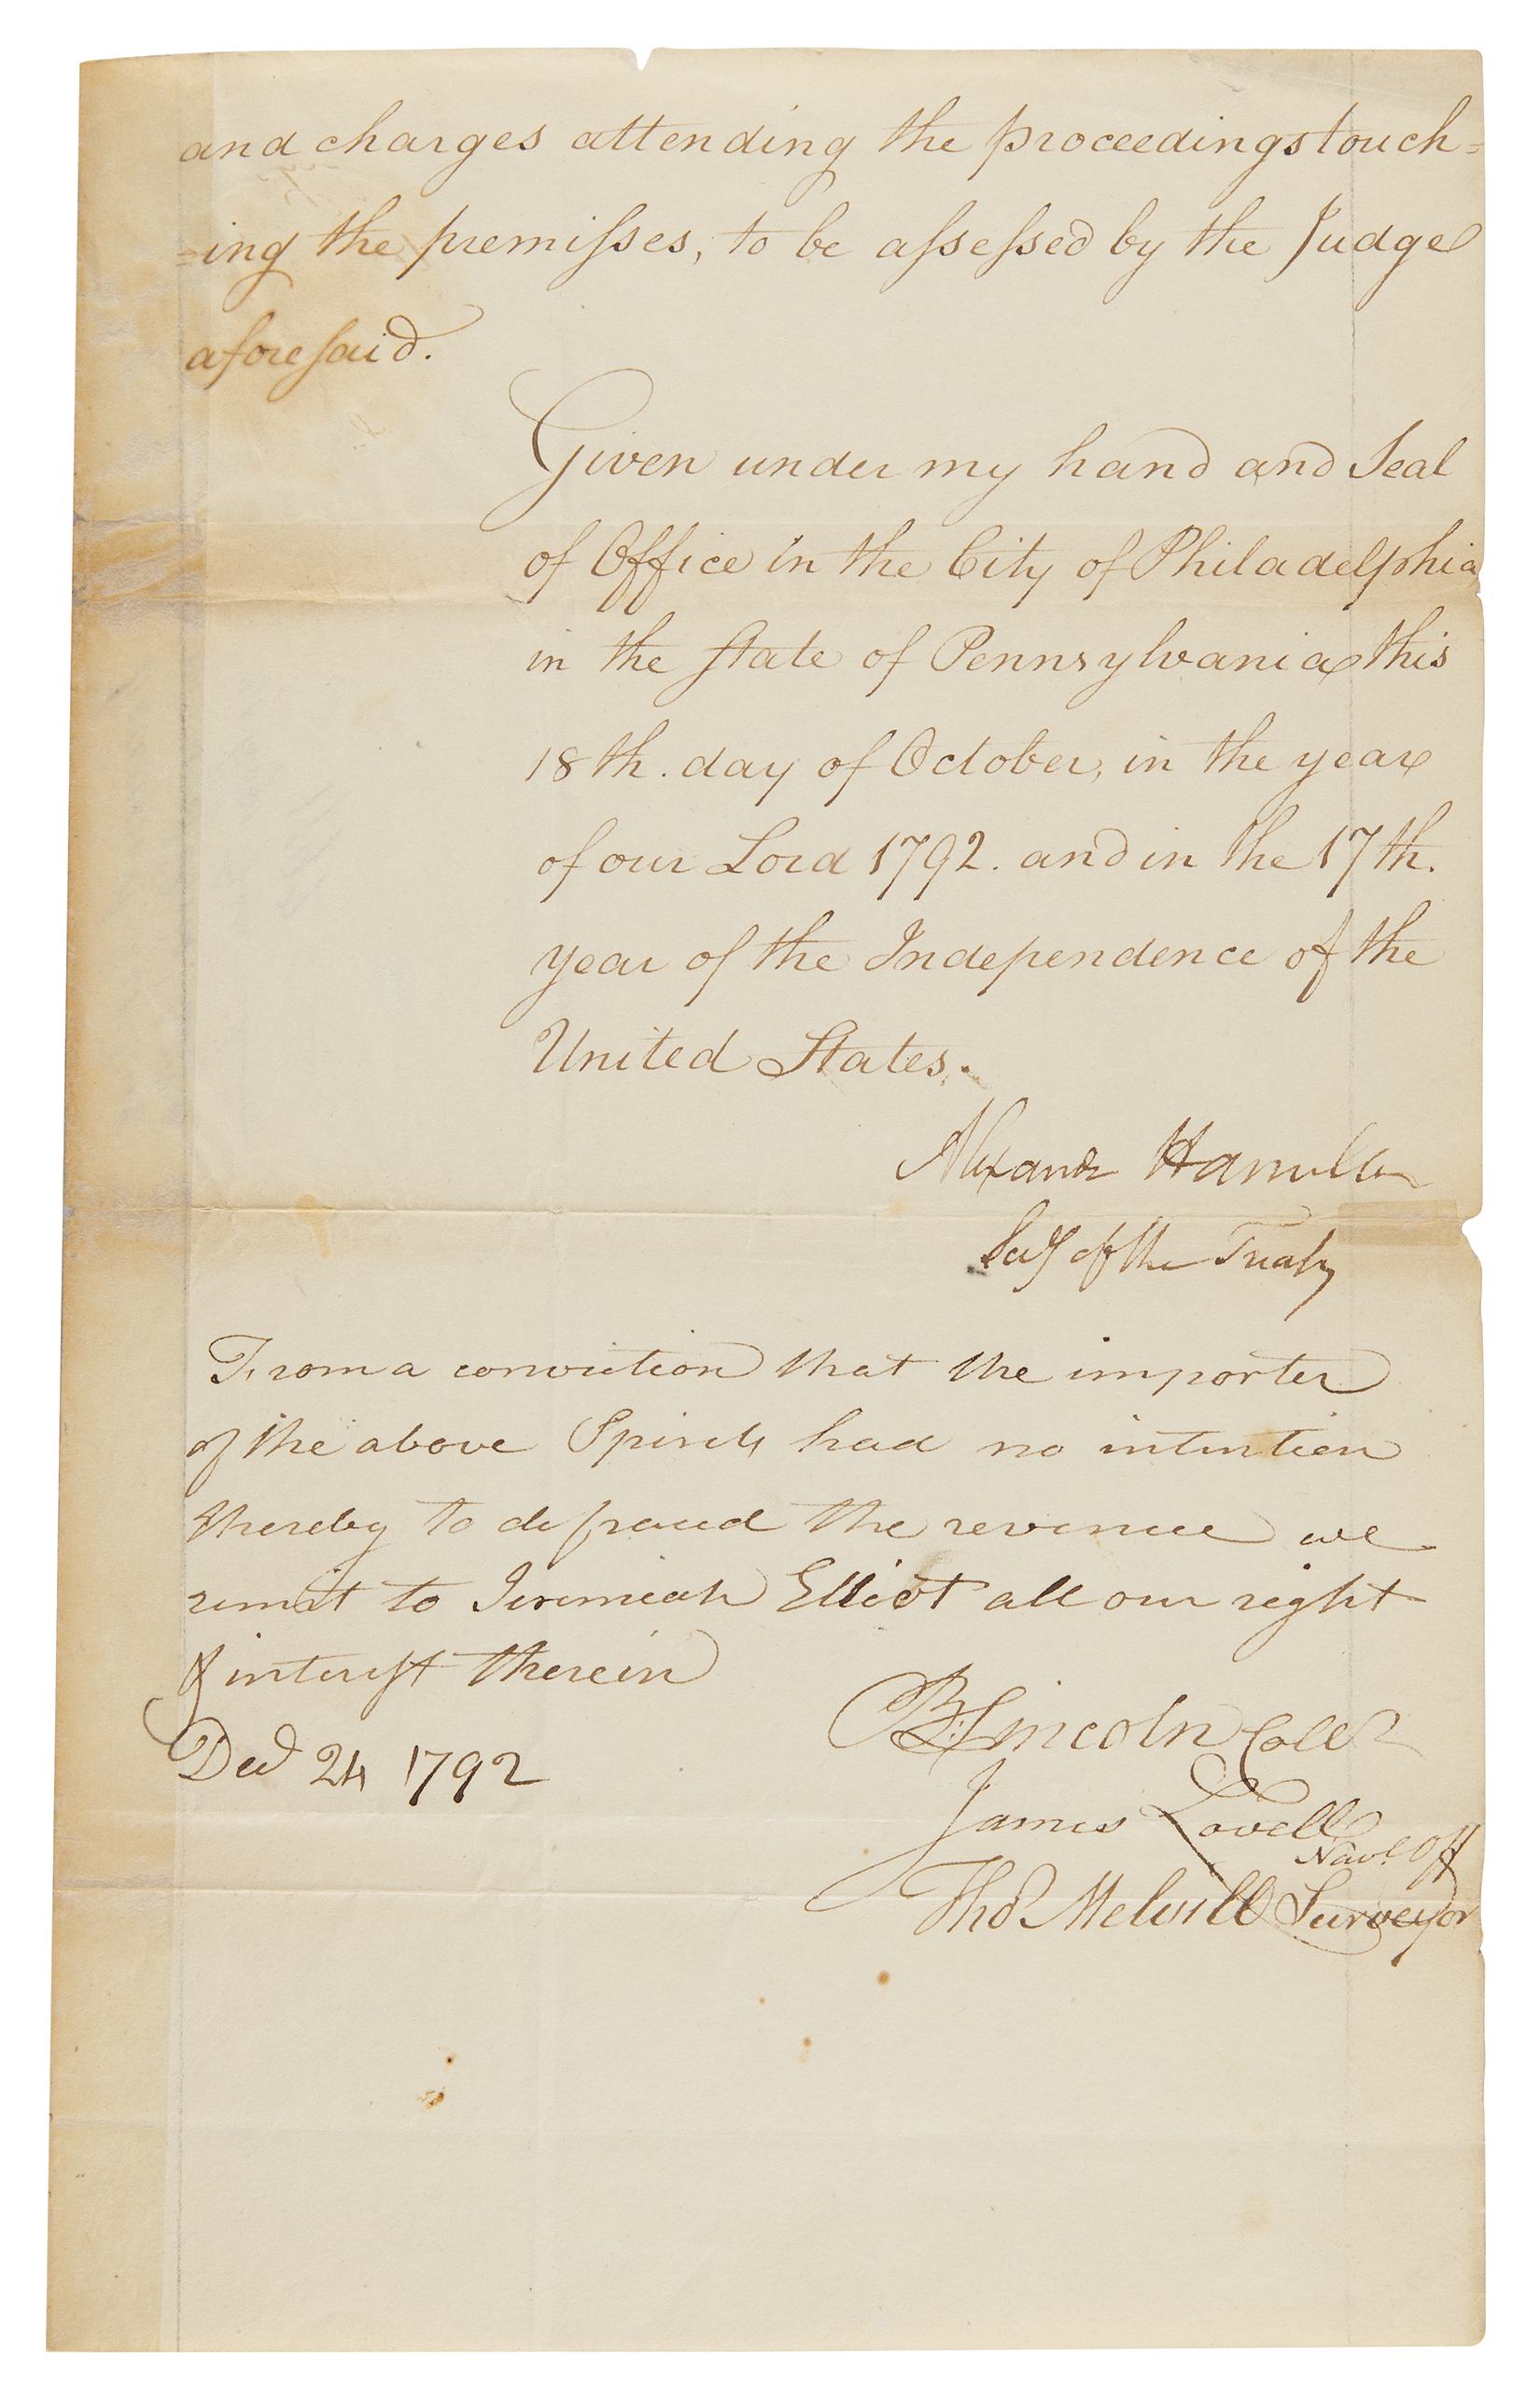 and charges attending the proceedings touch=
=ing the premiſses, to be aſseſsed by the Judge
aforeſaid.
Given under my hand and Seal
of Office in the City of Philadelphia
in the State of Pennsylvania this
18th. day of October, in the year
of our Lord 1792. and in the 17th.
year of the Independence of the
United States.
Alexander Hamilton
Secy of the Treasy
From a conviction that the importer
of the above Spirits had no intention
thereby to defraud the revenue we
remit to Jeremiah Elliot all our right
& intereſt therein
Decr 24 1792
B. Lincoln Collr
James Lovell
Navl Off
Thos Melvill Surveyor